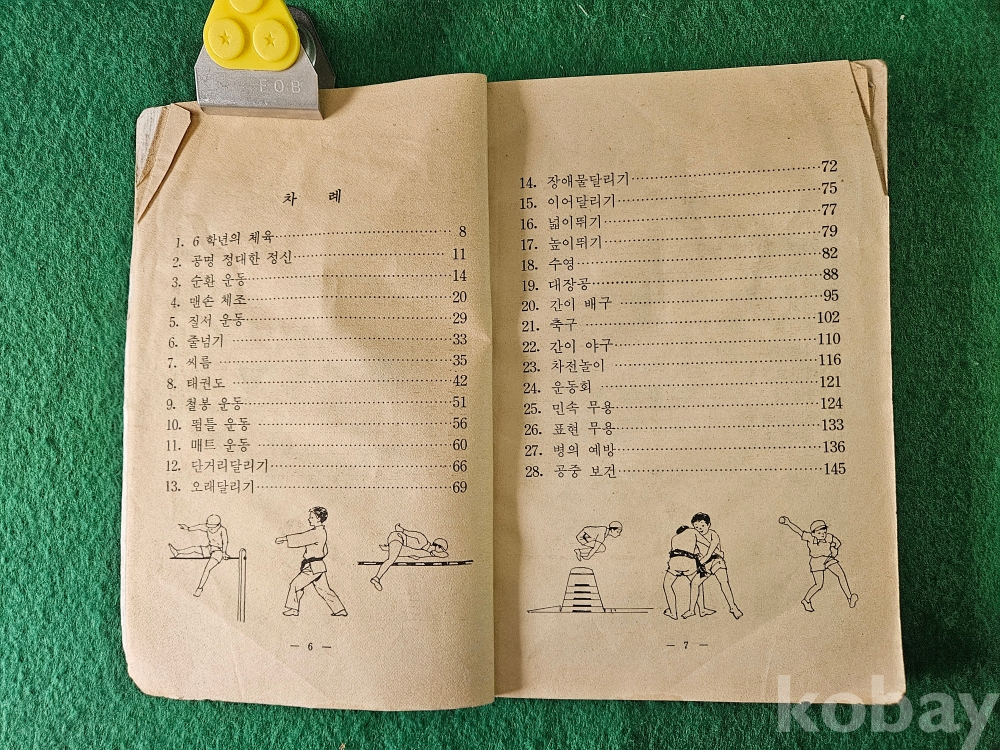 FOB
차 례
1. 6 학년의 체육 8
2. 공명 정대한 정신 11
3. 순환 운동 14
4. 맨손 체조 20
5. 질서 운동 29
6. 줄넘기 33
7. 씨름 35
8. 태권도 42
9. 철봉 운동 51
10. 뜀틀 운동 56
11. 매트 운동 60
12. 단거리달리기 66
13. 오래달리기 69
— 6 —
14. 장애물달리기 72
15. 이어달리기 75
16. 넓이뛰기 77
17. 높이뛰기 79
18. 수영 82
19. 대장공 88
20. 간이 배구 95
21. 축구 102
22. 간이 야구 110
23. 차전놀이 116
24. 운동회 121
25. 민속 무용 124
26. 표현 무용 133
27. 병의 예방 136
28. 공중 보건 145
— 7 —
kobay